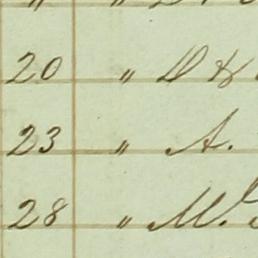 20 " D &
23 " A.
28 " M.